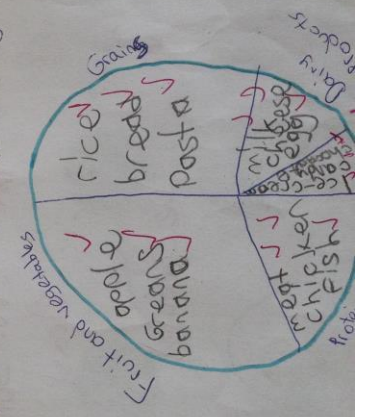 Grains
rice
bread
pasta
Dairy
products
milk
cheese
egg
Fruit and vegetables
apple
Greans
banana
meat
chicken
fish